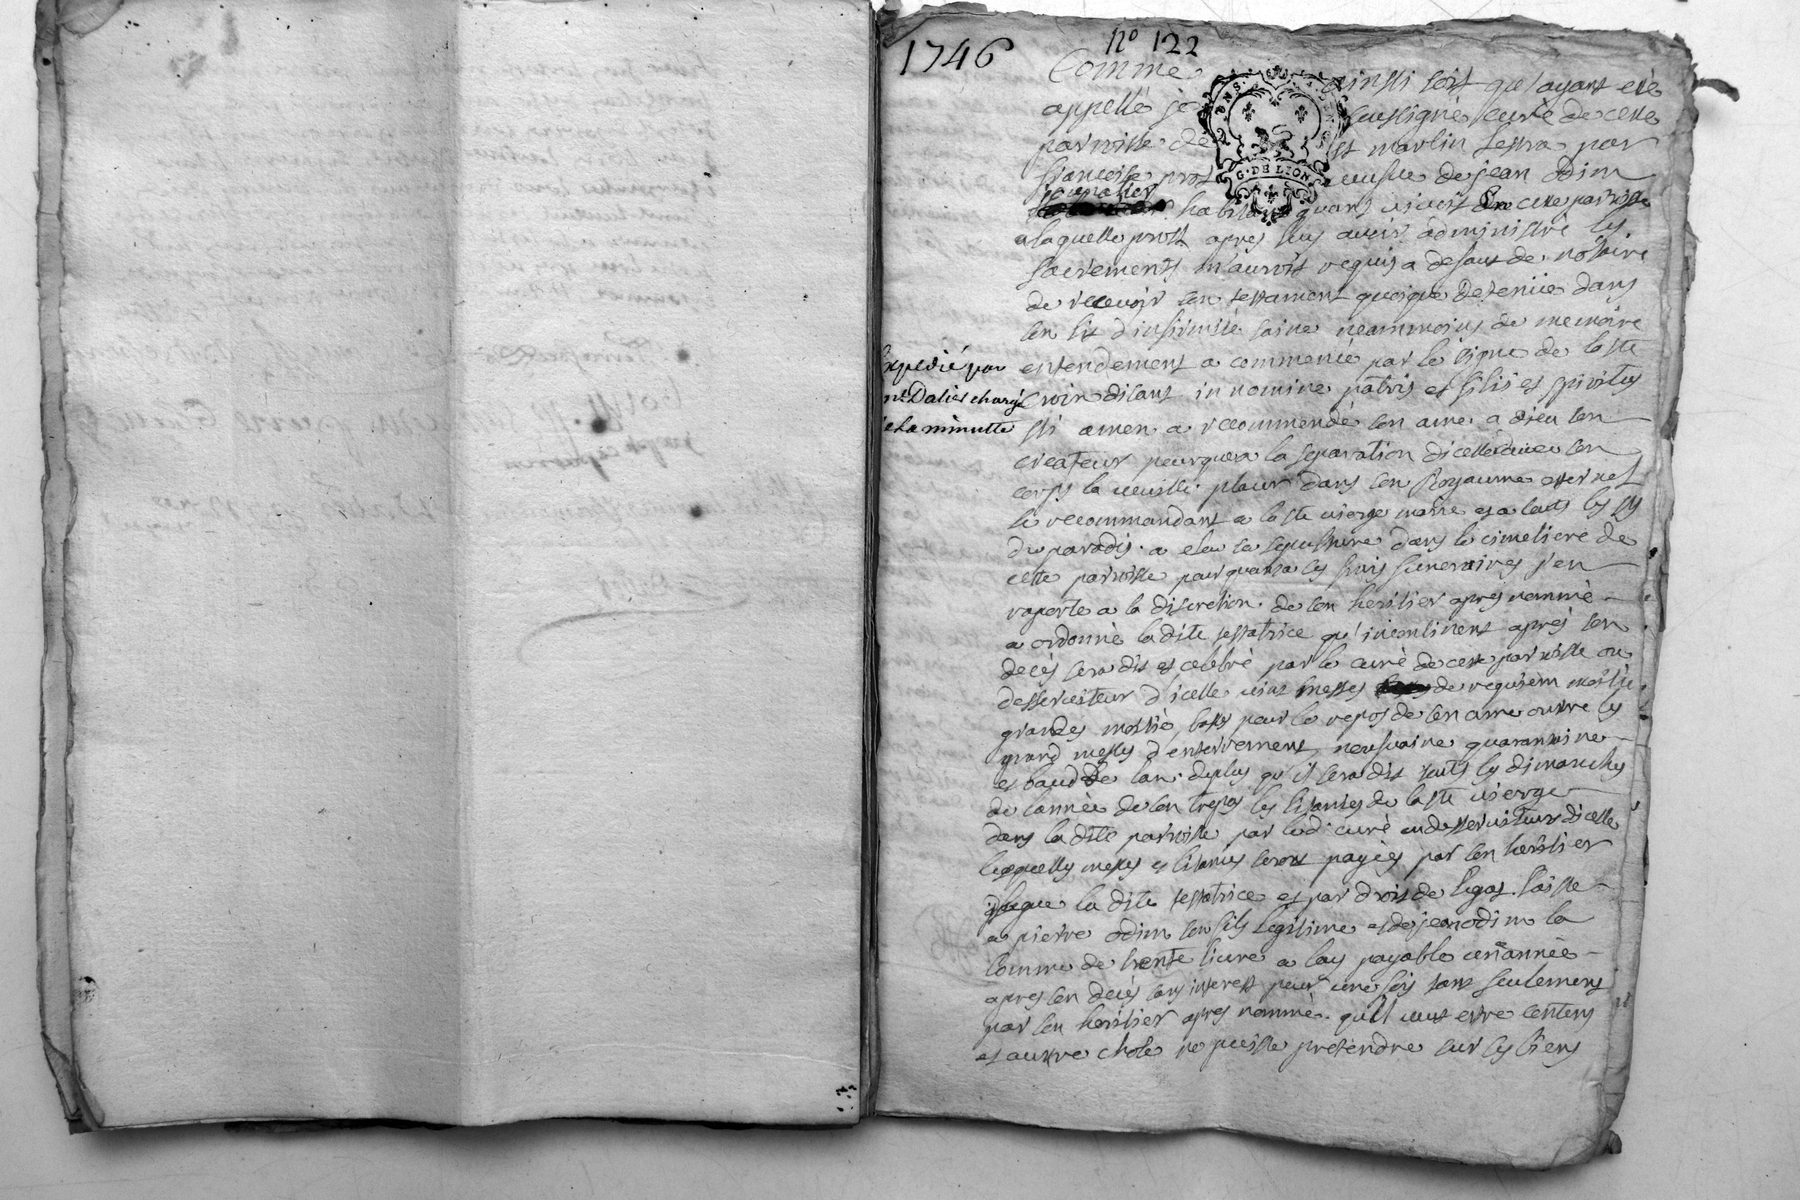 1746
nº 122
Comme ainsi soit que ayant eté
appellé je soussigné curé de cette
parroisse de st martin par
francoise prost veufve de jean odim
journalier habitant quant vivoit en cette parroisse
a laquelle prost apres luy avoir administré les
sacrements m'auroit requis a defaut de nottaire
de recevoir son testament quoique detenüe dans
son lit d'infirmité saine neammoins de memoire
entendement a commencé par le signe de la ste
Expedié par
me Daliès chargé
de la minutte
croix disant in nomine patris et filii et spiritus
sti amen a recommendé son ame a dieu son
createur pourquoy la separation dicelle avec son
corps la veuille placer dans son Royaume eternel
se recommandant a la ste vierge marie et a touts les sts
du paradis a eleu sa sepulture dans le cimetiere de
cette parroisse pour quant a les frais funeraires s'en
raporte a la discretion de son heritier apres nommé
a ordonné ladite testatrice qu'incontinent aprés son
decés sera dit et celebré par le curé de cette parroisse ou
desserviteur d'icelle vint messes de requiem moitié
grandes moitié basses pour le repos de son ame outre les
grand messes d'enterrement neufvaine quarantaine
et bout de lan deplus qu'il sera dit touts les dimanches
de lannée de son trepas les litanies de la ste vierge
dans la dite parroisse par ledt curé ou desserviteur dicelle
lesquelles messes et litanies seront payées par son heritier
legue la dite testatrice et par droit de legat laisse
a pierre odim son fils legitime et de jean odim la
somme de trente livre a luy payable une année
apres son decés sans interest pour une fois tant seulement
par son heritier apres nommé qu'il veut estre content
et autre chose ne puisse pretendre sur ses biens
G. DE LION